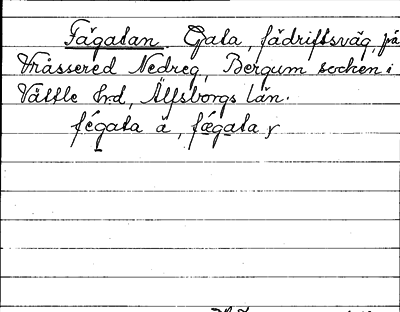 Fägatan Gata, fädriftsväg, på
Vråssered Nedreg, Bergum socken i
Vättle hd, Älfsborgs län.
fégata ä, fægata y